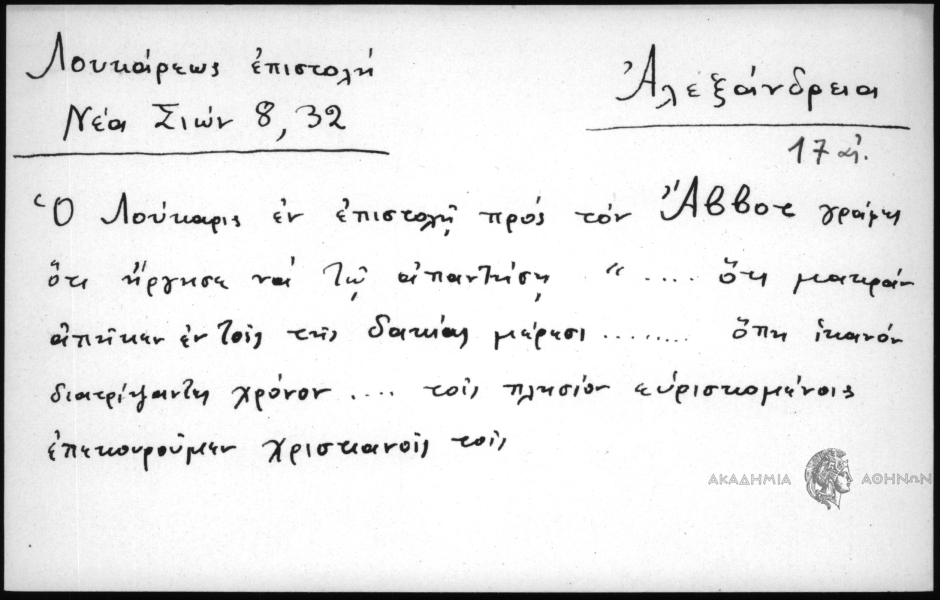 Λουκάρεως ἐπιστολή
Νέα Σιών 8, 32
Ἀλεξάνδρεια
17 αἰ.
Ὁ Λούκαρις ἐν ἐπιστολῇ πρός τόν Ἄββοτ γράφει
ὅτι ἤργησε νά τῷ ἀπαντήσῃ ".... ὅτι μακράν
ἀπῆμεν ἐν τοῖς τῆς δακίας μέρεσι ........ ὅπη ἱκανόν
διατρίψαντες χρόνον .... τοῖς πλησίον εὑρισκομένοις
ἐπεκουροῦμεν χριστιανοῖς τοῖς
ΑΚΑΔΗΜΙΑ ΑΘΗΝΩΝ